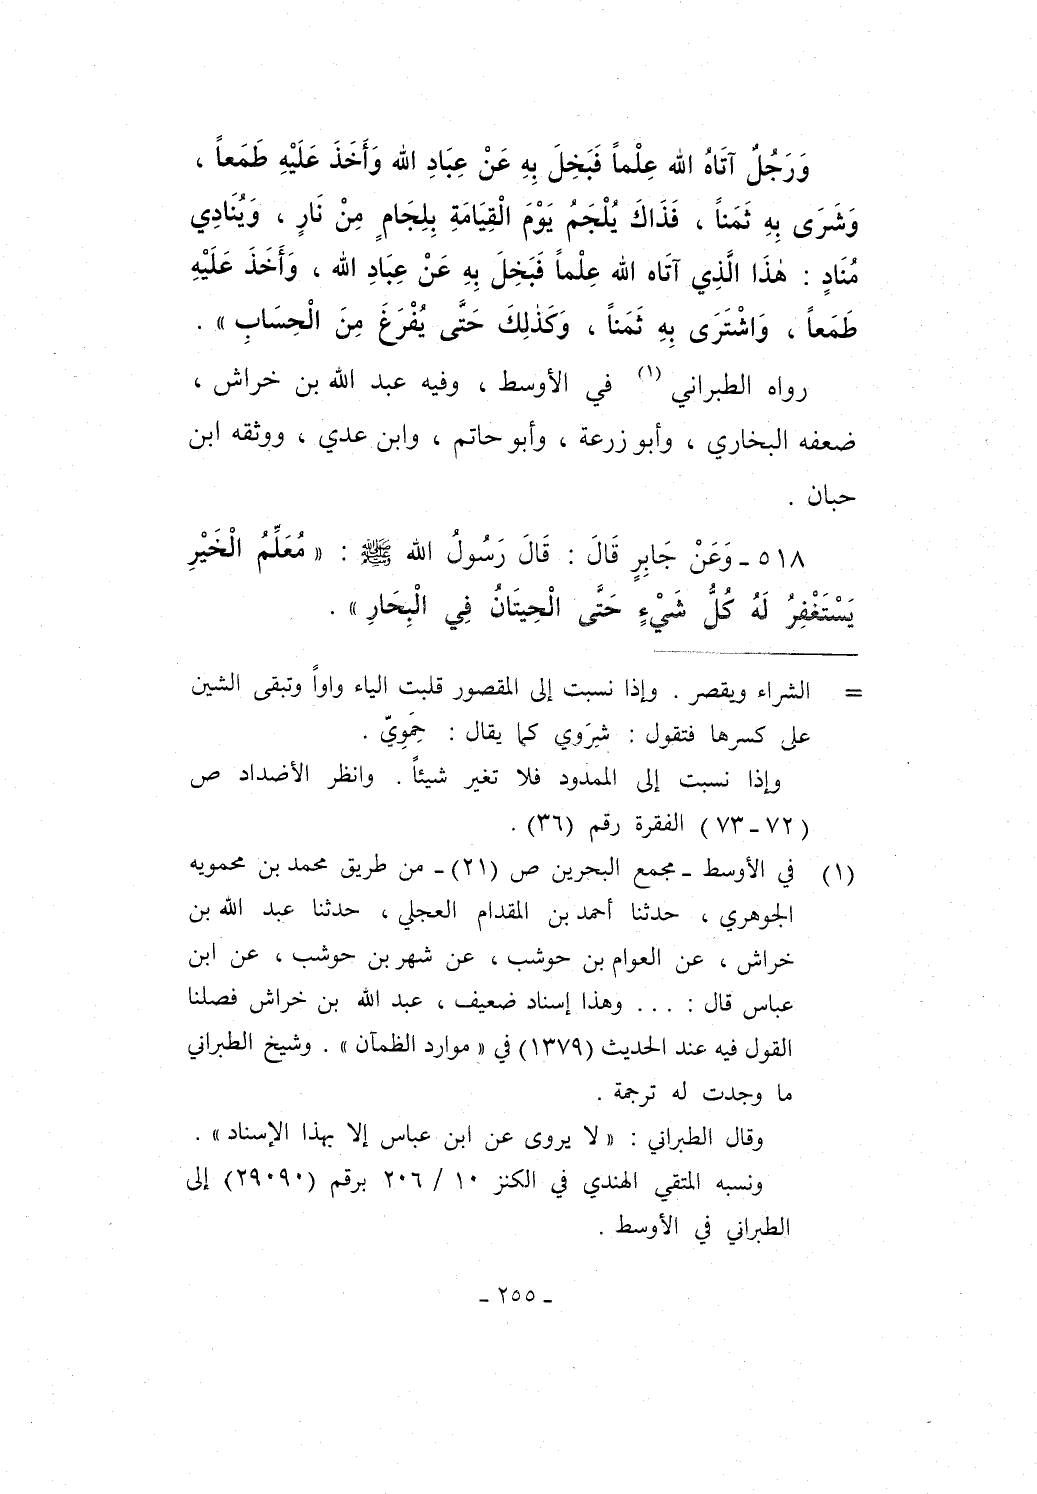 وَرَجُلٌ آتَاهُ الله عِلْماً فَبَخِلَ بِهِ عَنْ عِبَادِ الله وَأَخَذَ عَلَيْهِ طَمَعاً ،
وَشَرَى بِهِ ثَمَناً ، فَذَاكَ يُلْجَمُ يَوْمَ الْقِيَامَةِ بِلِجَامٍ مِنْ نَارٍ ، وَيُنَادِي
مُنَادٍ : هٰذَا الَّذِي آتَاه الله عِلْماً فَبَخِلَ بِهِ عَنْ عِبَادِ الله ، وَأَخَذَ عَلَيْهِ
طَمَعاً ، وَاشْتَرَى بِهِ ثَمَناً ، وَكَذٰلِكَ حَتَّى يُفْرَغَ مِنَ الْحِسَابِ » .
رواه الطبراني (١) في الأوسط ، وفيه عبد الله بن خراش ،
ضعفه البخاري ، وأبو زرعة ، وأبو حاتم ، وابن عدي ، ووثقه ابن
حبان .
٥١٨ ـ وَعَنْ جَابِرٍ قَالَ : قَالَ رَسُولُ الله ﷺ : « مُعَلِّمُ الْخَيْرِ
يَسْتَغْفِرُ لَهُ كُلُّ شَيْءٍ حَتَّى الْحِيتَانُ فِي الْبِحَارِ » .
= الشراء ويقصر . وإذا نسبت إلى المقصور قلبت الياء واواً وتبقى الشين
على كسرها فتقول : شِرَوي كما يقال : حِمَوِيّ .
وإذا نسبت إلى الممدود فلا تغير شيئاً . وانظر الأضداد ص
(٧٢ ـ ٧٣) الفقرة رقم (٣٦) .
(١) في الأوسط ـ مجمع البحرين ص (٢١) ـ من طريق محمد بن محمويه
الجوهري ، حدثنا أحمد بن المقدام العجلي ، حدثنا عبد الله بن
خراش ، عن العوام بن حوشب ، عن شهر بن حوشب ، عن ابن
عباس قال : ... وهذا إسناد ضعيف ، عبد الله بن خراش فصلنا
القول فيه عند الحديث (١٣٧٩) في « موارد الظمآن » . وشيخ الطبراني
ما وجدت له ترجمة .
وقال الطبراني : « لا يروى عن ابن عباس إلا بهذا الإسناد » .
ونسبه المتقي الهندي في الكنز ١٠ / ٢٠٦ برقم (٢٩٠٩٠) إلى
الطبراني في الأوسط .
ـ ٢٥٥ ـ